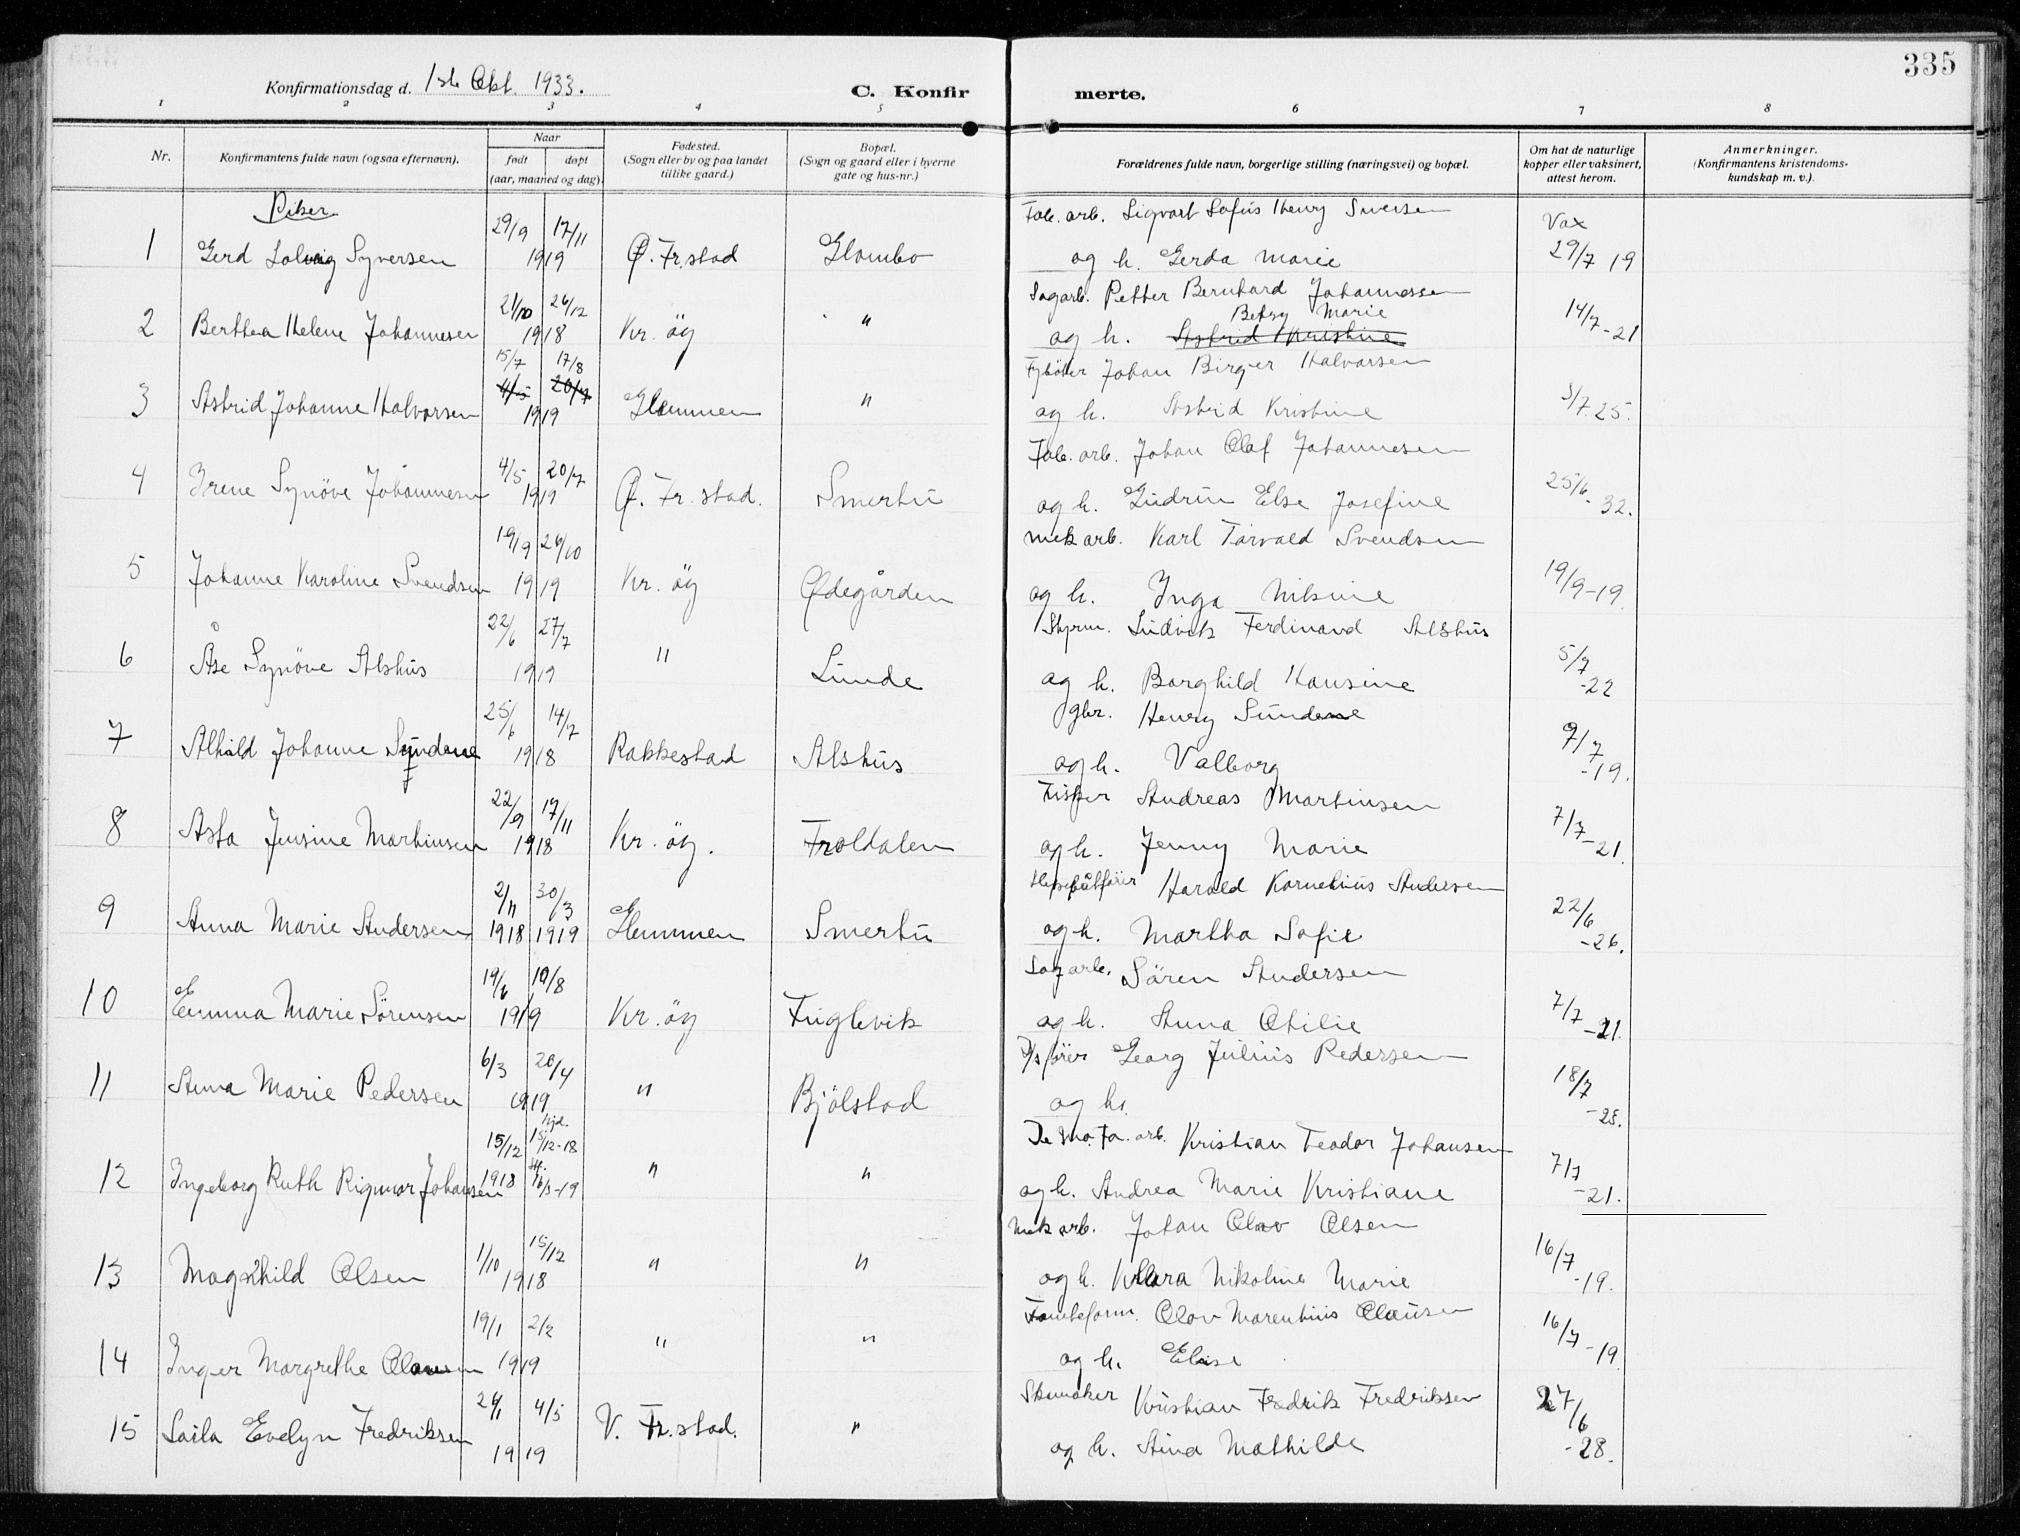 335
Konfirmationsdag d. 1ste Okt. 1933.
C. Konfirmerte.
1 2 3 4 5 6 7 8
Nr.
Konfirmantens fulde navn (ogsaa efternavn).
Naar
født
døpt
(aar, maaned og dag).
Fødested.
(Sogn eller by og paa landet
tillike gaard.)
Bopæl.
(Sogn og gaard eller i byerne
gate og hus-nr.)
Forældrenes fulde navn, borgerlige stilling (næringsvei) og bopæl.
Om hat de naturlige
kopper eller vaksinert,
attest herom.
Anmerkninger.
(Konfirmantens kristendoms-
kundskap m. v.).
Piker
29/9 17/11 Fab. arb. Sigvart Sofus Henry Siversen Vax
1 Gerd Solveig Syversen 1919 Ø. Fr.stad Glombo og h. Gerda Marie 29/7 19
21/10 26/12 Sagarb. Petter Bernhard Johannessen
Betsy Marie
2 Berthea Helene Johannesen 1918 Kr. øy " og h. Astrid Kristine 14/7-21
15/7 17/8 Fyrbøter Johan Birger Halvorsen
4/5 20/7
3 Astrid Johanne Halvorsen 1919 Glemmen " og h. Astrid Kristine 3/7 25.
4/5 20/7 Fab. arb. Johan Olaf Johannesen
4 Irene Synøve Johannesen 1919 Ø. Fr. stad. Smertu og h. Gudrun Else Josefine 25/6-32.
19/9 26/10 mek arb. Karl Torvald Svendsen
5 Johanne Karoline Svendsen 1919 Kr. øy Ødegården og h. Inga Nilsine 19/9-19.
22/6 27/7 Styrm. Ludvik Ferdinand Alshus
6 Åse Synøve Alshus 1919 " Lunde og h. Borghild Hansine 5/7-22
25/6 14/7 gbr. Henry Sundene
7 Alhild Johanne Sundene 1918 Rakkestad Alshus og h. Valborg 9/7-19.
22/9 17/11 Fisker Andreas Martinsen
8 Asta Jensine Martinsen 1918 Kr. øy. Troldalen og h. Jenny Marie 7/7-21.
2/11 30/3 Harald Kornelius Andersen
9 Anna Marie Andersen 1918 1919 Glemmen Smertu og h. Martha Sofie 22/6-26.
19/6 10/8 Sagarb. Sören Andersen
10 Emma Marie Sørensen 1919 Kr. øy Fuglevik og h. Anna Otilie 7/7-21.
6/3 20/4 Georg Julius Pedersen
11 Anna Marie Pedersen 1919 " Bjölstad og h. 18/7-28.
15/12 hjd. 15/12-18 Kristian Teodor Johansen
12 Ingeborg Ruth Rigmor Johansen 1918 16/3-19 " " og h. Andrea Marie Kristiane 7/7-21.
1/10 15/12 Mek arb. Johan Olav Olsen
13 Magnhild Olsen 1918 " " og h. Klara Nikoline Marie 16/7-19.
19/1 2/2 Olav Marentius Clausen
14 Inger Margrethe Clausen 1919 " " og h. Elise 16/7-19.
24/1 4/5 Skomaker Kristian Fredrik Fredriksen
15 Laila Evelyn Fredriksen 1919 V. Fr.stad. " og h. Aina Mathilde 27/6-28.